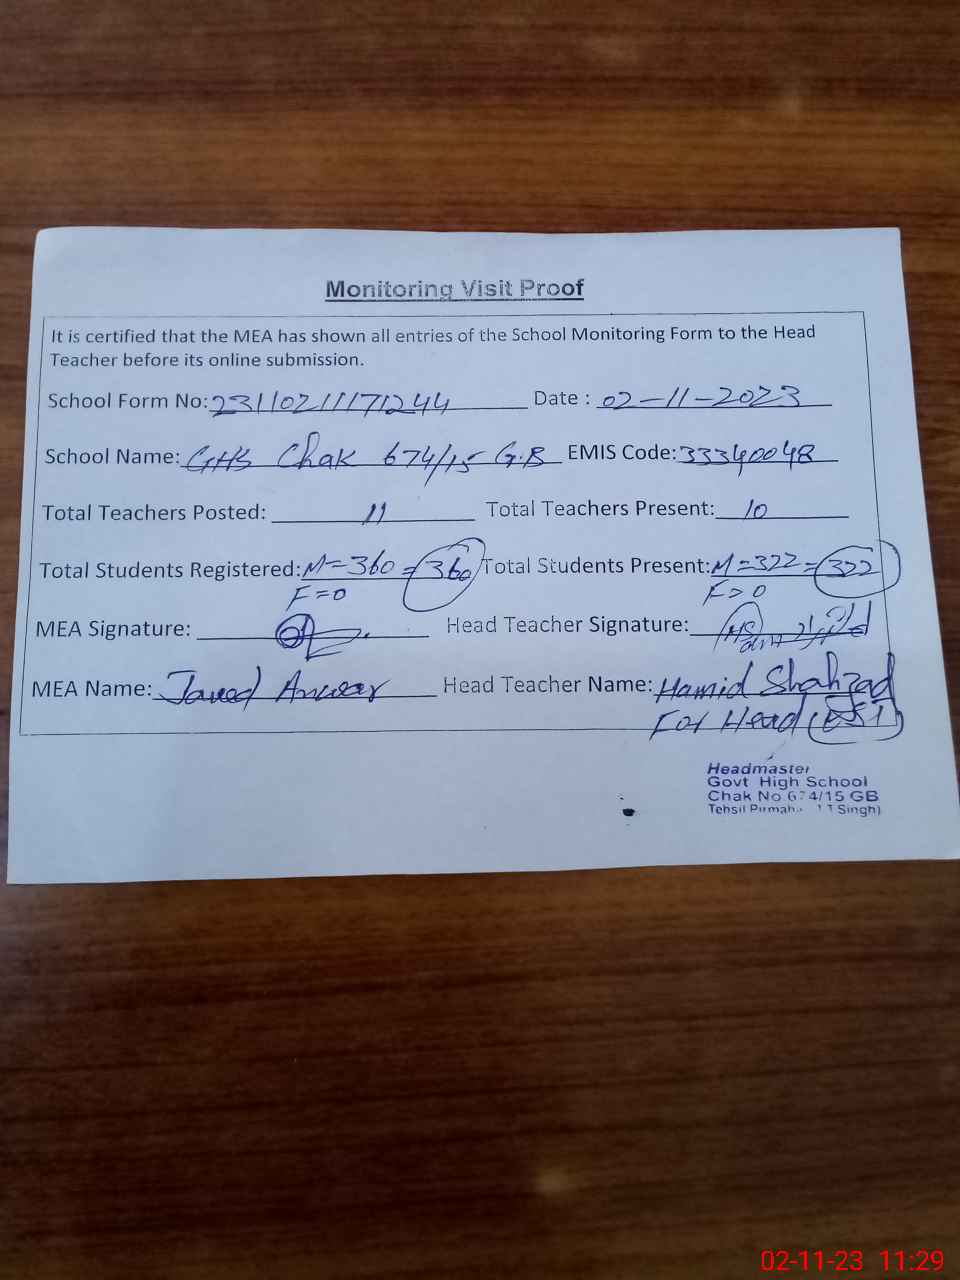 Monitoring Visit Proof
It is certified that the MEA has shown all entries of the School Monitoring Form to the Head
Teacher before its online submission.
School Form No: 23110211171244 Date : 02-11-2023
School Name: GHS Chak 674/15 G.B EMIS Code: 33340048
Total Teachers Posted: 11 Total Teachers Present: 10
Total Students Registered: M=360 = 360 Total Students Present: M=322 = 322
F=0 F=0
MEA Signature: Head Teacher Signature:
MEA Name: Javed Anwar Head Teacher Name: Hamid Shahzad
For Head
Headmaster
Govt High School
Chak No 674/15 GB
Tehsil Singh)
02-11-23 11:29